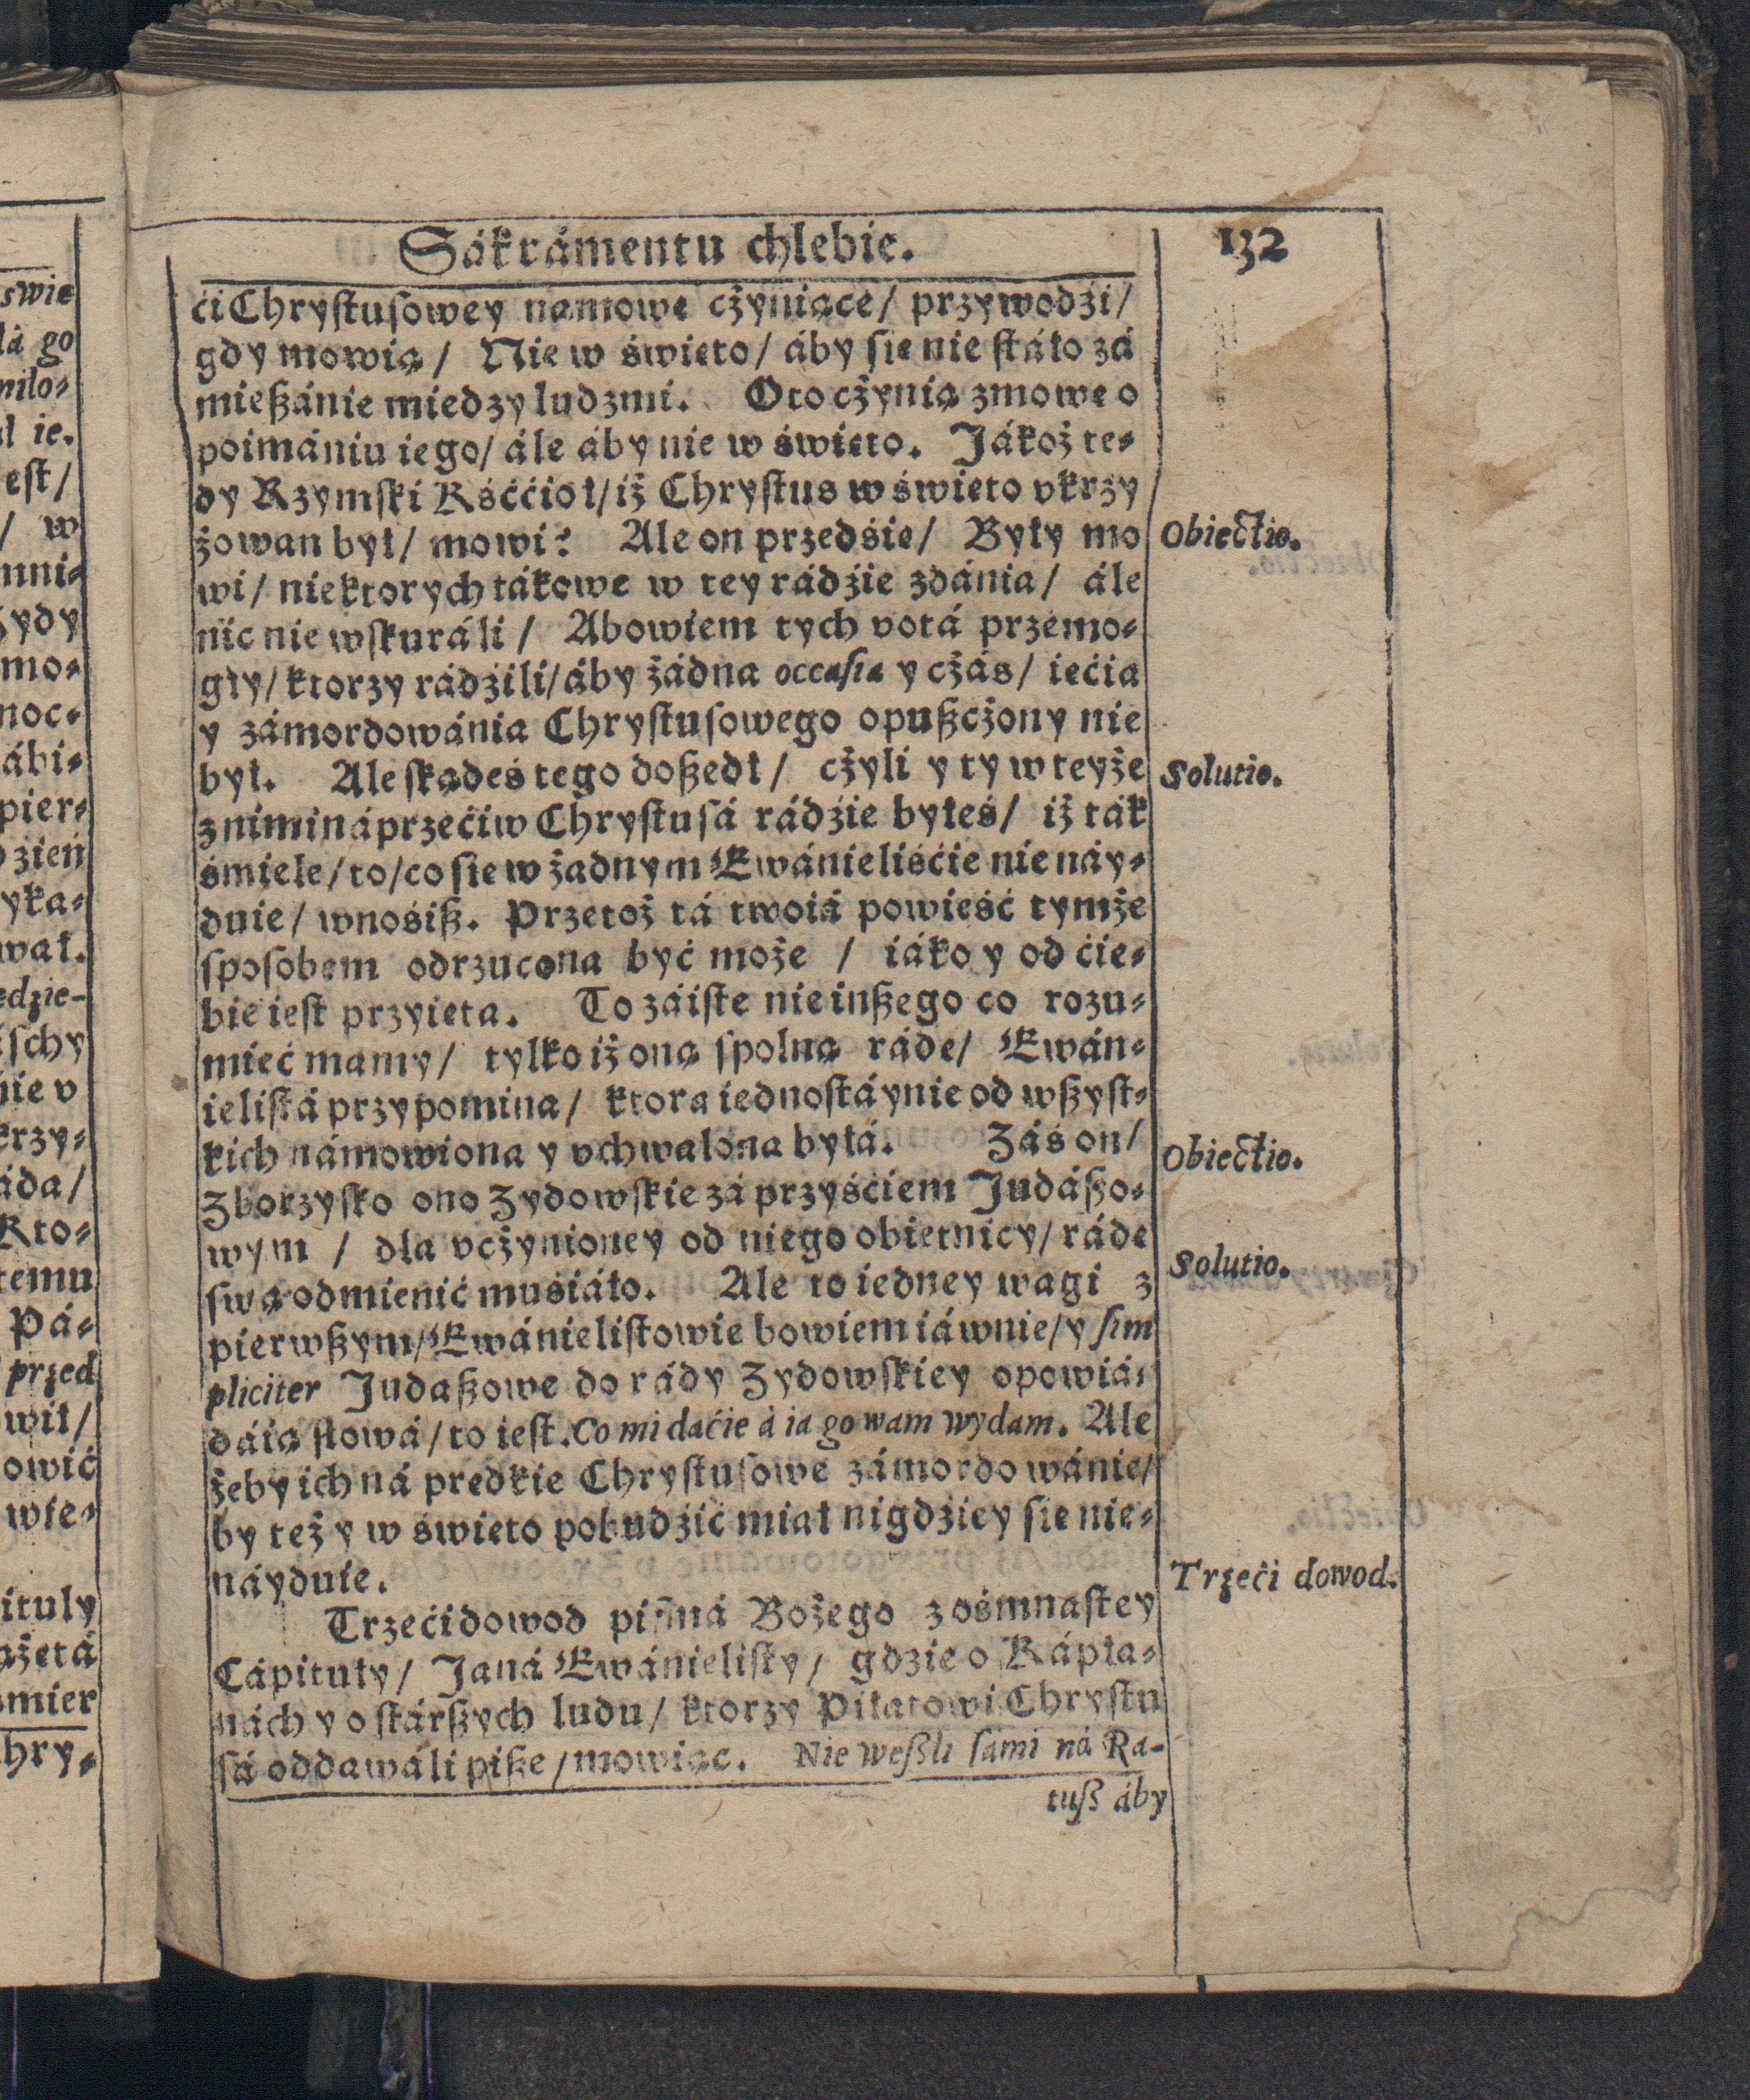 Sákrámentu chlebie.
132
ći Chrystusowey namowę cżyniące/ przywodźi/
gdy mowią/ Nie w święto/ áby się nie stáło zá
mieszánie miedzy ludzmi. Oto cżynią zmowę o
poimániu iego/ ále áby nie w święto. Jákoż te-
dy Rzymski Kśććioł/ iż Chrystus w święto vkrzy
żowan był/ mowi? Ale on przedśię/ Były mo
Obiectio.
wi/ niektorych tákowe w tey rádźie zdánia/ ále
nic nie wskuráli/ Abowiem tych votá przemo-
gły/ ktorzy rádźili/ áby żádna occasia y cżás/ ięćia
y zámordowánia Chrystusowego opuszcżony nie
był. Ale skądeś tego doszedł/ cżyli y ty w teyże
Solutio.
z nimi náprzećiw Chrystusá rádźie byłeś/ iż ták
śmiele/ to/ co się w żadnym Ewánieliśćie nie náy-
duie/ wnośisz. Przetoż tá twoiá powieść tymże
sposobem odrzucona być może / iáko y od ćie-
bie iest przyięta. To záiste nie inszego co rozu-
mieć mamy/ tylko iż oną spolną rádę/ Ewán-
ielistá przypomina/ ktora iednostáynie od wszyst-
kich námowiona y vchwalona byłá. Záś on/
Obiectio.
Zborzysko ono Zydowskie zá przyśćiem Judászo-
wym / dla vcżynioney od niego obietnicy/ rádę
swą odmienić muśiáło. Ale to iedney wagi z
Solutio.
pierwszym/ Ewánielistowie bowiem iáwnie/ y sim
pliciter Judaszowe do rády Zydowskiey opowiá-
dáią słowá/ to iest. Co mi daćie á ia go wam wydam. Ale
żeby ich ná prędkie Chrystusowe zámordowánie/
by też y w święto pobudźić miał nigdźiey się nie-
náyduie.
Trzeći dowod pismá Bożego z ośmnastey
Trzeći dowod.
Cápituły/ Janá Ewánielisty/ gdzie o Kápła-
nách y o stárszych ludu/ ktorzy Piłatowi Chrystu
sá oddawáli pisze/ mowiąc. Nie weszli sámi ná Ra-
tusz áby